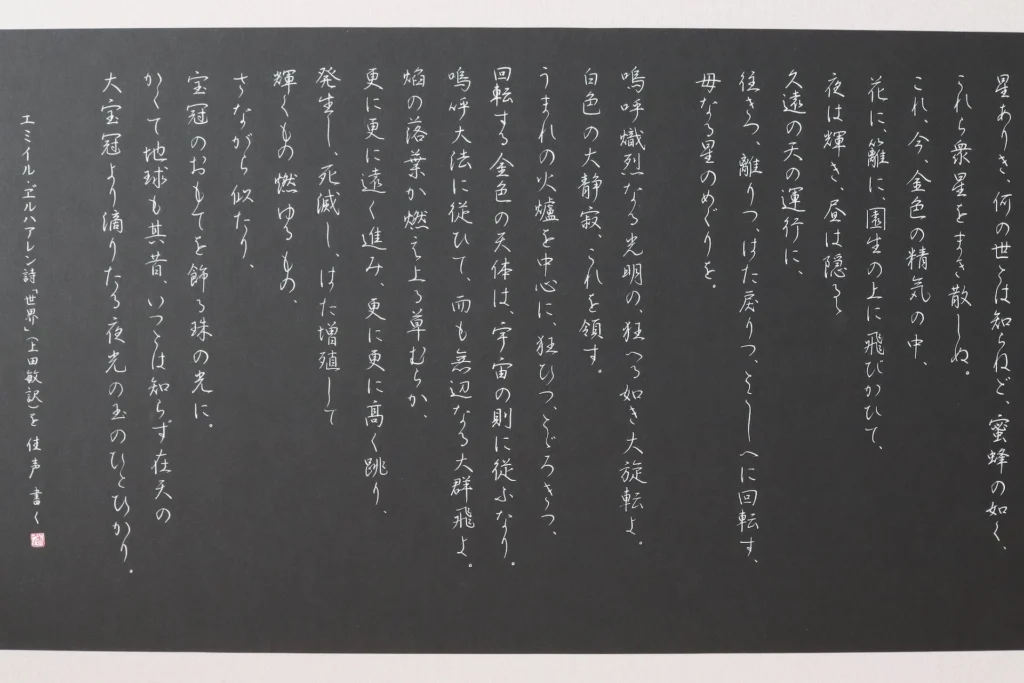 星ありき、何の世とは知らねど、蜜蜂の如く、
これら衆星をまき散しぬ。
これ、今、金色の精気の中、
花に、籬に、園生の上に飛びかひて、
夜は輝き、昼は隠るゝ
久遠の天の運行に、
往きつ、離りつ、はた戻りつ、とこしへに回転す、
母なる星のめぐりを。
嗚呼熾烈なる光明の、狂へる如き大旋転よ。
白色の大静寂、これを領す。
うまれの火爐を中心に、狂ひつ、とどろきつ、
回転する金色の天体は、宇宙の則に従ふなり。
嗚呼大法に従ひて、而も無辺なる大群飛よ。
焔の落葉か燃え上る草むらか、
更に更に遠く進み、更に更に高く跳り、
発生し、死滅し、はた増殖して
輝くもの燃ゆるもの、
さながら似たり、
宝冠のおもてを飾る珠の光に。
かくて地球も其昔、いつとは知らず在天の
大宝冠より滴りたる夜光の玉のひとひかり。
エミイル・ヱルハアレン詩「世界」(上田敏訳)を 佳声 書く